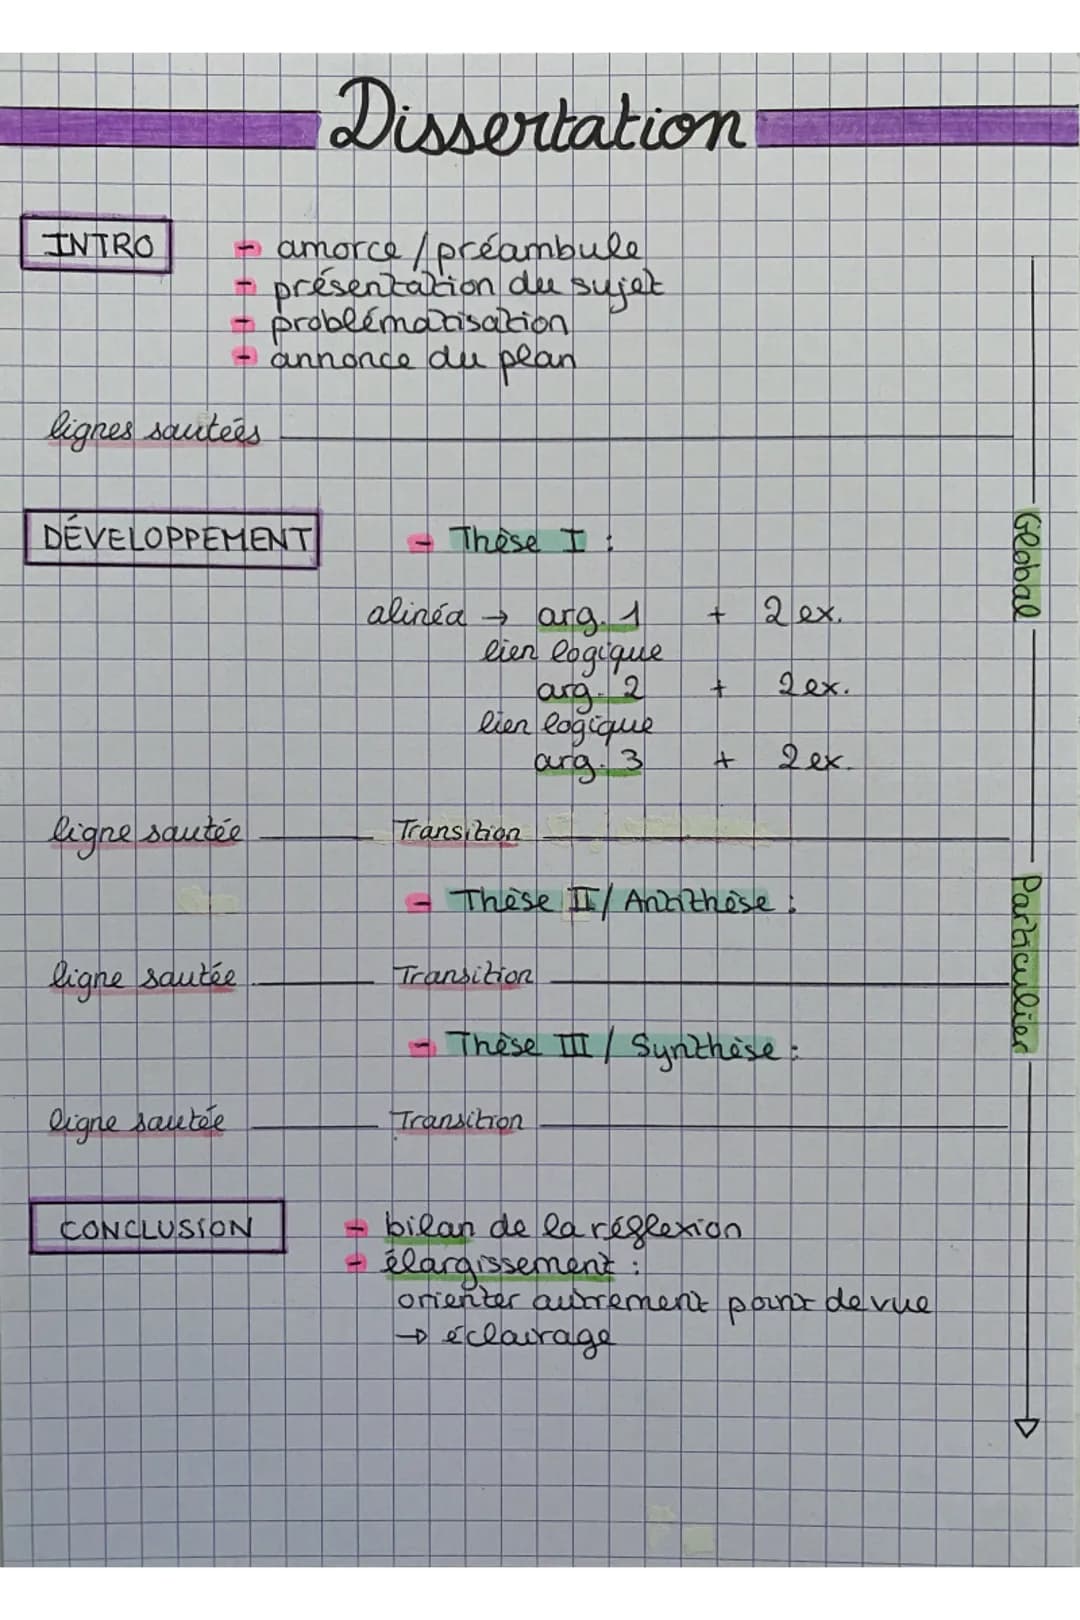 Dissertation
INTRO
- amorce / préambule
- présentation du sujet
- problématisation
- annonce du plan
lignes sautées
DÉVELOPPEMENT
- Thèse I :
alinéa → arg. 1 + 2 ex.
lien logique
arg. 2 + 2 ex.
lien logique
arg. 3 + 2 ex.
ligne sautée Transition
- Thèse II / Antithèse :
ligne sautée Transition
- Thèse III / Synthèse :
ligne sautée Transition
CONCLUSION
- bilan de la réflexion
- élargissement :
orienter autrement point de vue
→ éclairage
Global
Particulier